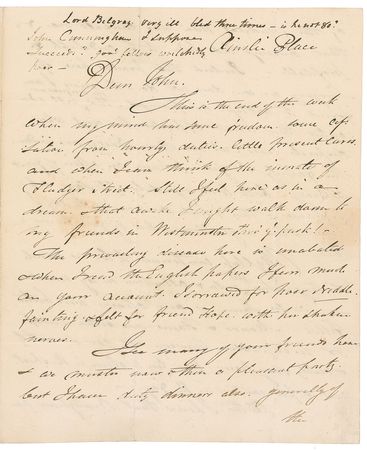 Lord Belgray very ill bled three times – is he not 80?
John Cunningham I suppose
succeeds? poor fellow wretchedly
poor –
Ainslie Place
Dear John.
This is the end of the week
when my mind has some freedom some
from hourly duties. little present cares
and when I can think of the inmate of
Fludyer Street. Still I feel here as in a
dream. & that I might walk down to
my friends in Westminster thro' y. park! –
The prevailing disease here is unabated
& when I read the English papers I fear much
on your account. I sorrowed for poor
fainting & felt for friend Hope. with her shaken
nerves.
I see many of your friends here
& we muster now & then a pleasant party.
but I have duty dinners also. generally of
the